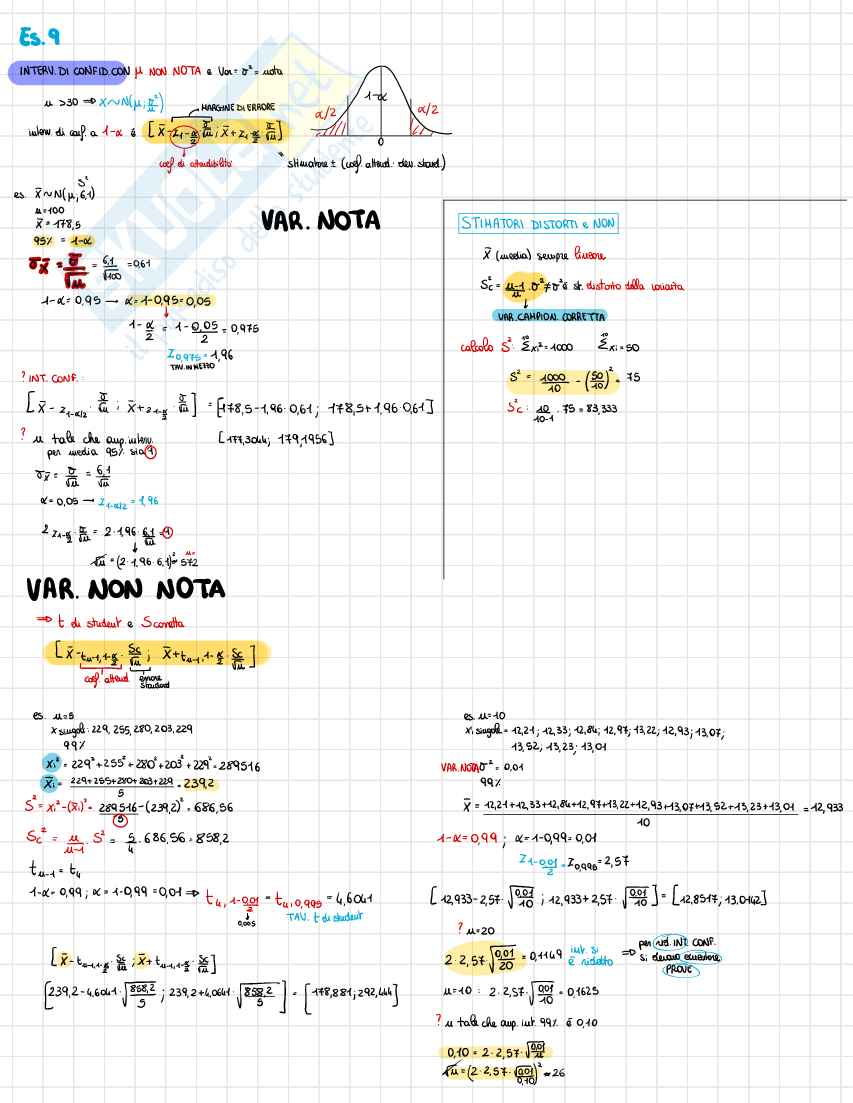 Es. 9
INTERV. DI CONFID. CON μ NON NOTA e Var = σ² = nota
n >30 ⇒ X~N(μ; σ²/n)
MARGINE DI ERRORE
interv. di conf. a 1-α è [X̄ - z1-α/2 · σ/√n ; X̄ + z1-α/2 · σ/√n]
coef. di attendibilità
"stimatore ± (coef. attend. · dev. stand.)
α/2 1-α α/2
0
es. X̄~N(μ, 6,1)
S²
n=100
X̄ = 178,5
95% = 1-α
VAR. NOTA
σX̄ = σ/√n = 6,1/√100 = 0,61
1-α = 0,95 → α = 1-0,95 = 0,05
1-α/2 = 1-0,05/2 = 0,975
Z0,975 = 1,96
TAV. IN MEZZO
? INT. CONF.:
[X̄ - z1-α/2 · σ/√n ; X̄ + z1-α/2 · σ/√n] = [178,5-1,96·0,61 ; 178,5+1,96·0,61]
[177,3044; 179,1956]
? n tale che amp. interv.
per media 95% sia 1
σX̄ = σ/√n = 6,1/√n
α = 0,05 → Z1-α/2 = 1,96
2 z1-α/2 · σ/√n = 2·1,96·6,1/√n = 1
√n = (2·1,96·6,1)² n= 572
STIMATORI DISTORTI e NON
X̄ (media) sempre lineare
Sc² = n-1/n · σ² ≠ σ² è st. distorto della varianza
VAR. CAMPION. CORRETTA
calcolo S²: Σ¹⁰ xi² = 1000 Σ¹⁰ xi = 50
S² = 1000/10 - (50/10)² = 75
Sc²: 10/10-1 · 75 = 83,333
VAR. NON NOTA
⇒ t di student e S corretta
[X̄ - tn-1,1-α/2 · Sc/√n ; X̄ + tn-1,1-α/2 · Sc/√n]
coef. attend. errore standard
es. n=5
x singoli: 229, 255, 280, 203, 229
99%
xi² = 229² + 255² + 280² + 203² + 229² = 289516
X̄i = 229+255+280+203+229/5 = 239,2
S² = xi² - (x̄i)² = 289516/5 - (239,2)² = 686,56
Sc² = n/n-1 · S² = 5/4 · 686,56 = 858,2
tn-1 = t4
1-α = 0,99 ; α = 1-0,99 = 0,01 ⇒ t4, 1-0,01/2 = t4, 0,995 = 4,6041
0,005 TAV. t di student
[X̄ - tn-1,1-α/2 · Sc/√n ; X̄ + tn-1,1-α/2 · Sc/√n]
[239,2-4,6041·√858,2/5 ; 239,2+4,0641·√858,2/5] = [178,881; 292,444]
es. n=10
xi singole = 12,21; 12,33; 12,84; 12,97; 13,22; 12,93; 13,07;
13,52; 13,23; 13,01
VAR. NOTA σ² = 0,01
99%
X̄ = 12,21+12,33+12,84+12,97+13,22+12,93+13,07+13,52+13,23+13,01/10 = 12,933
1-α = 0,99 ; α = 1-0,99 = 0,01
Z1-0,01/2 = Z0,995 = 2,57
[12,933-2,57·√0,01/10 ; 12,933+2,57·√0,01/10] = [12,8517; 13,0142]
? n=20
2·2,57·√0,01/20 = 0,1149 int. si è ridotto ⇒ per rid. INT. CONF. si devono aumentare PROVE
n=10 : 2·2,57·√0,01/10 = 0,1625
? n tale che amp. int. 99% è 0,10
0,10 = 2·2,57·√0,01/n
√n = (2·2,57·√0,01/0,10)² ≈ 26